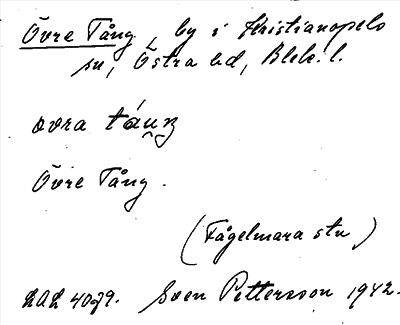 Övre Tång, by i Kristianopels
sn, Östra hd, Blek. l.
övra táuŋ
Övre Tång.
(Fågelmara stn)
LAL 4079. Sven Pettersson 1942.